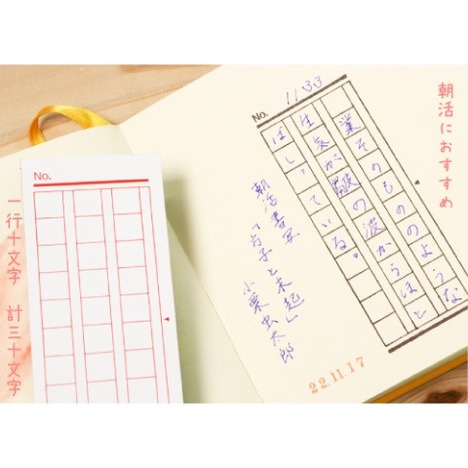 朝活におすすめ
No. 1133
業そのもののような
生気が皺の波からほと
ばしっている。
朝活書写
「方子と末起」
小栗虫太郎
22.11.17
No.
一行十文字 計三十文字